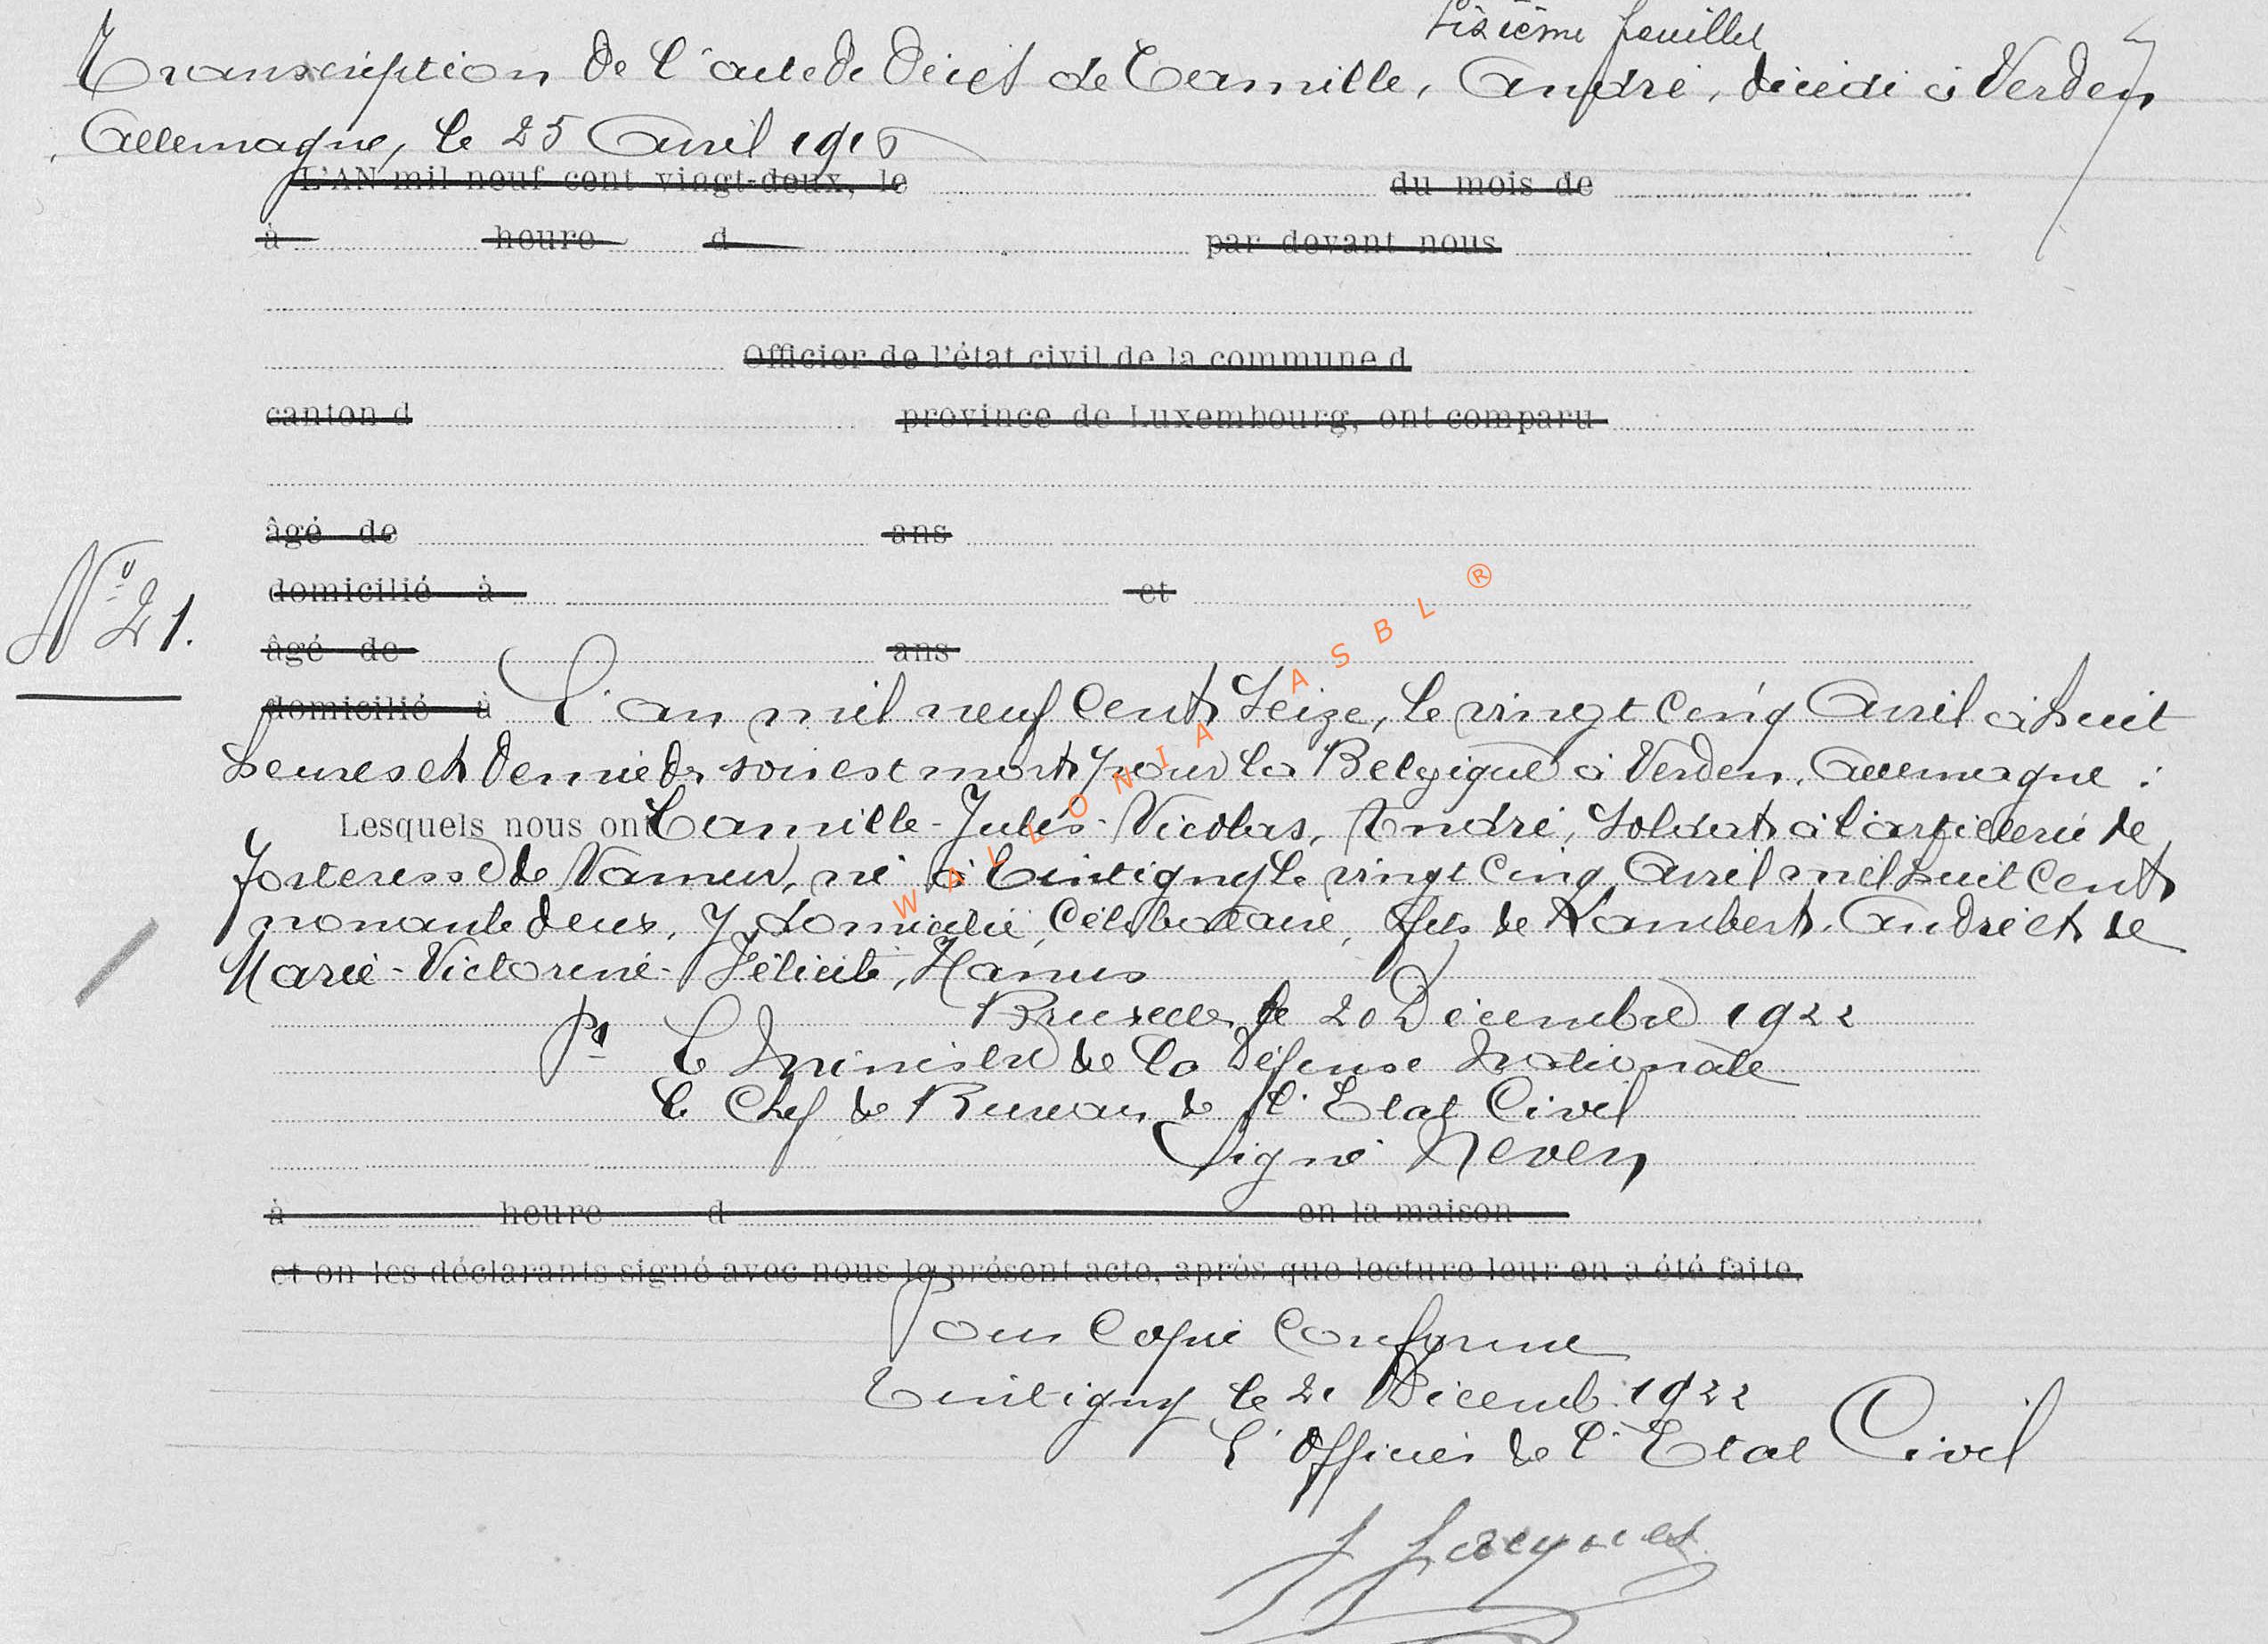 sixième feuillet
Transcription de l'acte de décès de Camille, André, décédé à Verden
Allemagne, le 25 Avril 1916
L'AN mil neuf cent vingt-deux, le du mois de
à heure d par devant nous
Officier de l'état civil de la commune d
canton d province de Luxembourg, ont comparu
âgé de ans
domicilié à et
N° 21.
âgé de ans
domicilié à L'an mil neuf cent seize, le vingt cinq Avril à huit
heures et demie du soir est mort pour la Belgique à Verden, Allemagne :
Lesquels nous ont Camille-Jules-Nicolas, André, soldat à l'artillerie de
forteresse de Namur, né à Tintigny le vingt cinq Avril mil huit cent
nonante deux, y domicilié, célibataire, fils de Lambert, André et de
Marie-Victorine-Félicité, Hanus
Bruxelles, le 20 Décembre 1922
Pr Le Ministre de la Défense Nationale
le Chef de Bureau de l'Etat Civil
Signé Neven
à heure d en la maison
et on les déclarants signé avec nous le présent acte, après que lecture leur en a été faite.
Pour Copie Conforme
Tintigny le 21 Décemb. 1922
L'Officier de l'Etat Civil
WALLONIA ASBL ®